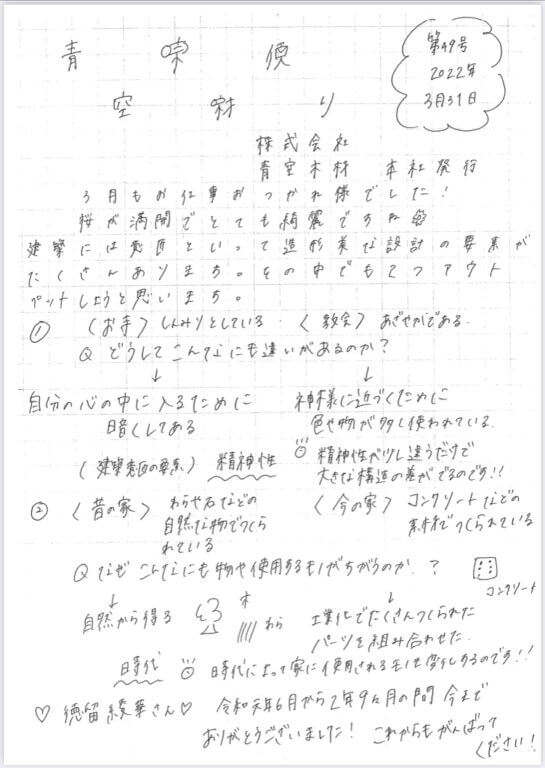 青空便り
第49号
2022年
3月31日
株式会社
青空木材 本社発行
3月もお仕事おつかれ様でした!
桜が満開でとても綺麗ですね
建築には意匠といって造形美な設計の要素が
たくさんあります。その中でも2つアウト
プットしようと思います。
① 〈お寺〉しんみりとしている 〈教会〉あざやかである
Q どうしてこんなにも違いがあるのか?
↓ ↓
自分の心の中に入るために
暗くしてある
神様に近づくために
色や物が多く使われている.
(建築意匠の要素) 精神性
精神性が少し違うだけで
大きな構造の差がでるのです!!
② 〈昔の家〉 わらや石などの
自然な物でつくら
れている
〈今の家〉 コンクリートなどの
素材でつくられている
Q なぜこんなにも物や使用するモノがちがうのか.?
コンクリート
↓ ↓
自然から得る 木 わら
工業化でたくさんつくられた
パーツを組み合わせた.
時代 時代によって家に使用されるモノも変化するのです!!
♡ 徳留綾華さん♡ 令和元年6月から2年9ヵ月の間 今まで
ありがとうございました! これからもがんばって
ください!